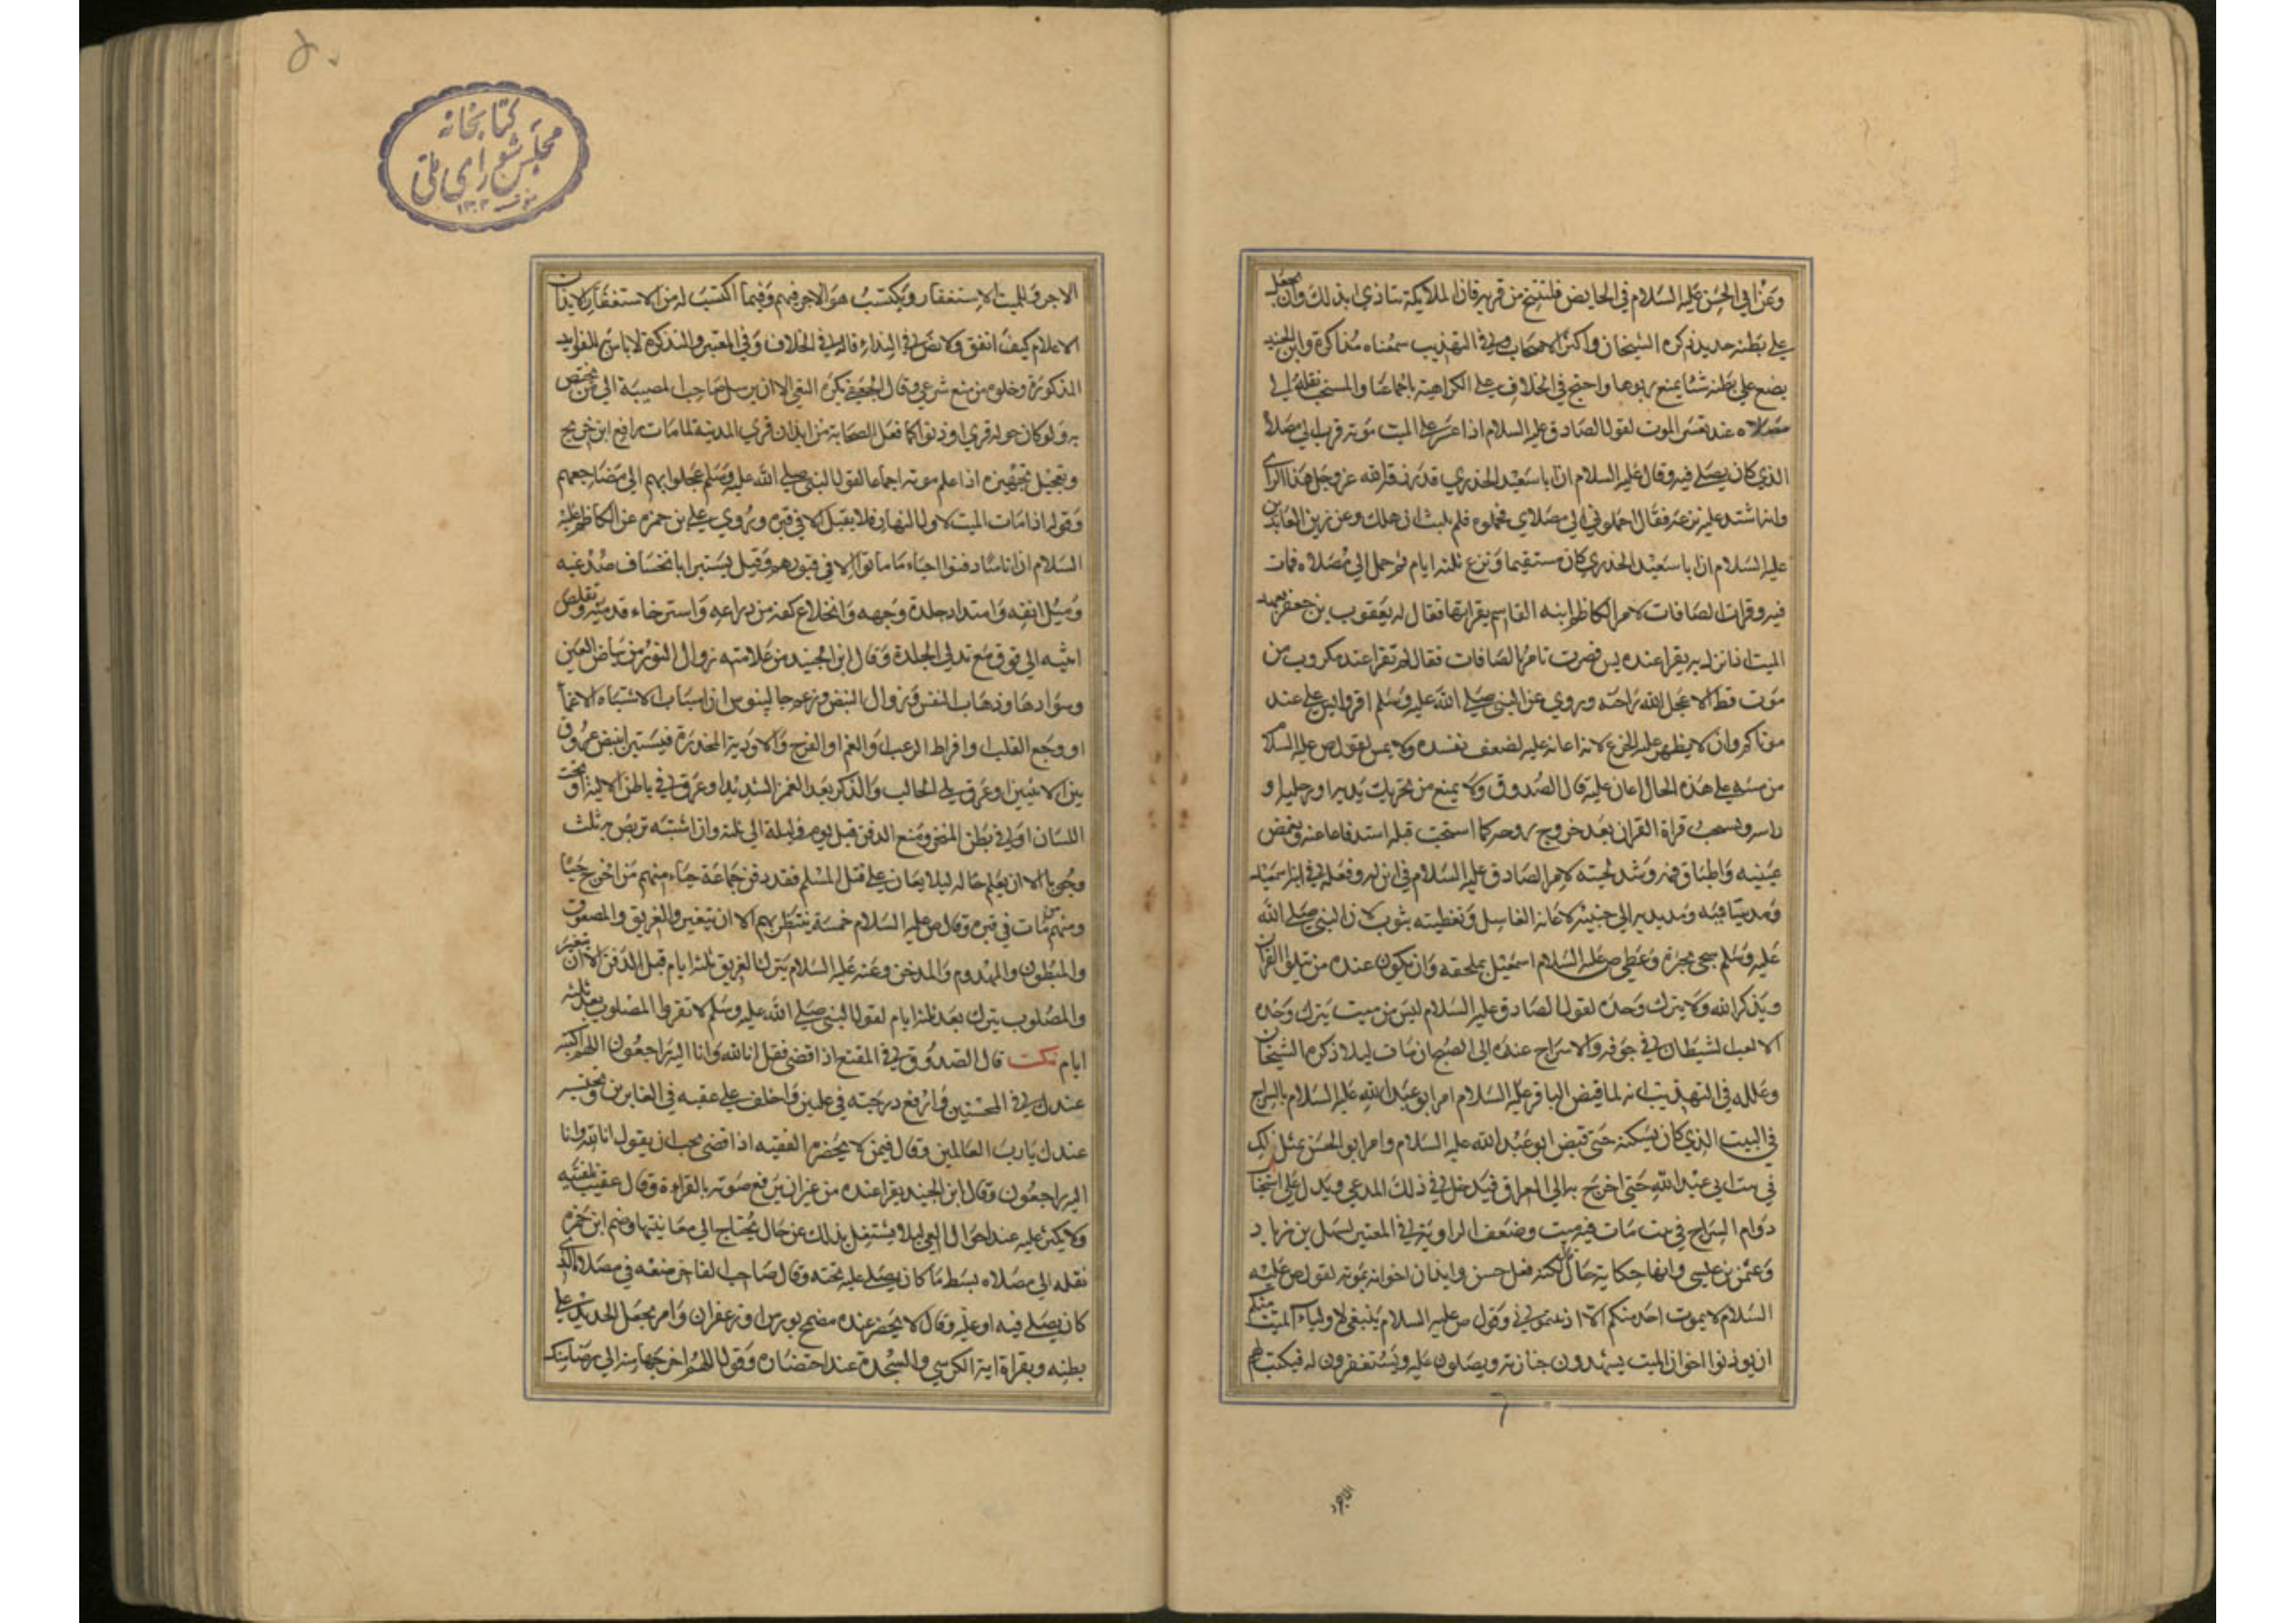 وعن ابي الحسن عليه السلام في الحايض فلتتنح من قربه فان الملايكة تتاذي بذلك وان يجعل
علي بطنه حديد ذكره الشيخان واكثر الاصحاب وفي التهذيب سمعناه مذاكرة وابن الجنيد
يضع علي بطنه شيئا يمنع ربوها واحتج في الخلاف علي الكراهية باجماعنا والمستحب نقله الي
مصلاه عند تعسر الموت لقول الصادق عليه السلام اذا عسر علي الميت موته قرب الي مصلاه
الذي كان يصلي فيه وقال عليه السلام ان ابا سعيد الخدري قد رزقه الله عز وجل هذا الراي
وانه اشتد عليه نزعه فقال احملوني الي مصلاي فحملوه فلم يلبث ان هلك وعن زين العابدين
عليه السلام ان ابا سعيد الخدري كان مستقيما ونزع ثلثة ايام ثم حمل الي مصلاه فمات
فيه وقراة الصافات لامر الكاظم ابنه القاسم بقراتها فقال له يعقوب بن جعفر نعهد
الميت اذا نزل به يقرا عنده يس فصرت تامرنا بالصافات فقال لم تقرا عند مكروب من
موت قط الا عجل الله راحته وروي عن النبي صلي الله عليه وسلم اقروا يس علي عند
موتاكم وان لا يظهر عليه الجزع لانه اعانة عليه لضعف نفسه ولا يمس لقول ص عليه السلام
من مسه علي هذه الحال اعان عليه قال الصدوق ولا يمنع من تحريك يديه او رجليه او
راسه ويستحب قراة القران بعد خروج روحه كما استحب قبله استدفاعا عنه وتغمض
عينيه واطباق فمه وشد لحيته لامر الصادق عليه السلام في ابن له وفعله في ابنه اسمعيل
ومد ساقيه ومد يديه الي جنبيه لاعانة الغاسل وتغطيته بثوب لان النبي صلي الله
عليه وسلم سجي بحبرة وغطي ص عليه السلام اسمعيل بملحفة وان يكون عنده من يتلو القران
ويذكر الله ولا يترك وحده لقول الصادق عليه السلام ليس من ميت يترك وحده
الا لعب الشيطان في جوفه والاسراج عنده الي الصبح ان مات ليلا ذكره الشيخان
وعلله في التهذيب انه لما قبض الباقر عليه السلام امر ابو عبد الله عليه السلام بالسراج
في البيت الذي كان يسكنه حتي قبض ابو عبد الله عليه السلام وامر ابو الحسن بمثل ذلك
في بيت ابي عبد الله حتي اخرج به الي العراق فيدخل في ذلك المدعي ويدل علي استحباب
دوام السراج في بيت مات فيه ميت وضعف الراوية في المعتبر لسهل بن زياد
وعثمن بن عيسي وانها حكاية حال لكنه فعل حسن وايذان اخوانه بموته لقول ص عليه
السلام لا يموت احد منكم الا اذنتموني وقول ص عليه السلام ينبغي لاولياء الميت منكم
ان يوذنوا اخوان الميت يشهدون جنازته ويصلون عليه ويستغفرون له فيكتب لهم
الاجر
كتابخانه
مجلس شورای ملی
الاجر وللميت الاستغفار ويكتسب هو الاجر فيهم وفيما اكتسب له من الاستغفار والايذان
الاعلام كيف اتفق ولا نص في النداء قاله في الخلاف وفي المعتبر والتذكرة لا باس به للفوايد
المذكورة وخلوه من منع شرعي وقال الجعفي يكره النعي الا ان يرسل صاحب المصيبة الي من يختص
به ولو كان حوله قري اوذنوا كما فعل الصحابة من ايذان قري المدينة لما مات رافع ابن خديج
وتعجيل تجهيزه اذا علم موته اجماعا لقول النبي صلي الله عليه وسلم عجلوا بهم الي مضاجعهم
وقوله اذا مات الميت لاول النهار فلا يقيل الا في قبره وروي علي بن حمزه عن الكاظم عليه
السلام ان اناسا دفنوا احياء ما ماتوا الا في قبورهم وقيل يستبرا بانخساف صدغيه
وميل انفه وامتداد جلدة وجهه وانخلاع كفه من ذراعه واسترخاء قدميه وتقلص
انثييه الي فوق مع تدلي الجلدة وقال ابن الجنيد من علامته زوال النور من بياض العين
وسوادها وذهاب النفس وزوال النبض وزعم جالينوس ان اسباب الاشتباه الاغما
او وجع القلب وافراط الرعب والغم او الفرح والادوية المخدرة فيستبرا بنبض عروق
بين الانثيين او عرق يلي الحالب والذكر بعد الغمز الشديد او عرق في باطن الالية او تحت
اللسان او في بطن المنخر ومنع الدفن قبل يوم وليلة الي ثلثة وان اشتبه تربص به ثلث
وجوبا الا ان يعلم حاله ليلا يعان علي قتل المسلم فقد دفن جماعة احياء منهم من اخرج حيا
ومنهم من مات في قبره وقال ص عليه السلام خمسة ينتظر بهم الا ان يتغيروا الغريق والمصعوق
والمبطون والمهدوم والمدخن وعنه عليه السلام يترك الغريق ثلثة ايام قبل الدفن الا ان يتغير
والمصلوب يترك بعد ثلثة ايام لقول النبي صلي الله عليه وسلم لا تقروا المصلوب بعد ثلثة
ايام نكت قال الصدوق في المقنع اذا قضي فقل انا لله وانا اليه راجعون اللهم اكتبه
عندك في المحسنين وارفع درجته في عليين واخلف علي عقبه في الغابرين ونحتسبه
عندك يا رب العالمين وقال فيمن لا يحضره الفقيه اذا قضي يجب ان يقول انا لله وانا
اليه راجعون وقال ابن الجنيد يقرا عنده من غير ان يرفع صوته بالقراءة وقال عقيب تلقينه
ولا يكثر عليه عند احوال الغمي ليلا يشتغل بذلك عن حال يحتاج الي معاينتها وضم ابن حمزه
نقله الي مصلاه بسط ما كان يصلي عليه تحته وقال صاحب الفاخر ضعه في مصلاه الذي
كان يصلي فيه او عليه وقال لا يحضر عنده مضمخ بورس او زعفران وامر بجعل الحديد علي
بطنه وبقراة اية الكرسي والسجدة عند احتضاره وقول اللهم اخرجها منه الي رضا منك